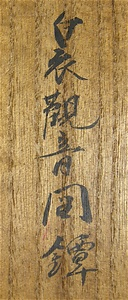 白衣觀音図鐔